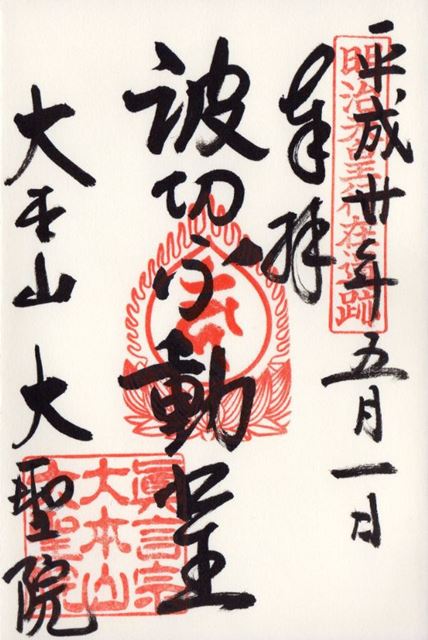 明治天皇行在遺跡
平成廿 年五月一日
奉拝
波切不動堂
大本山 大聖院
眞言宗
大本山
大聖院